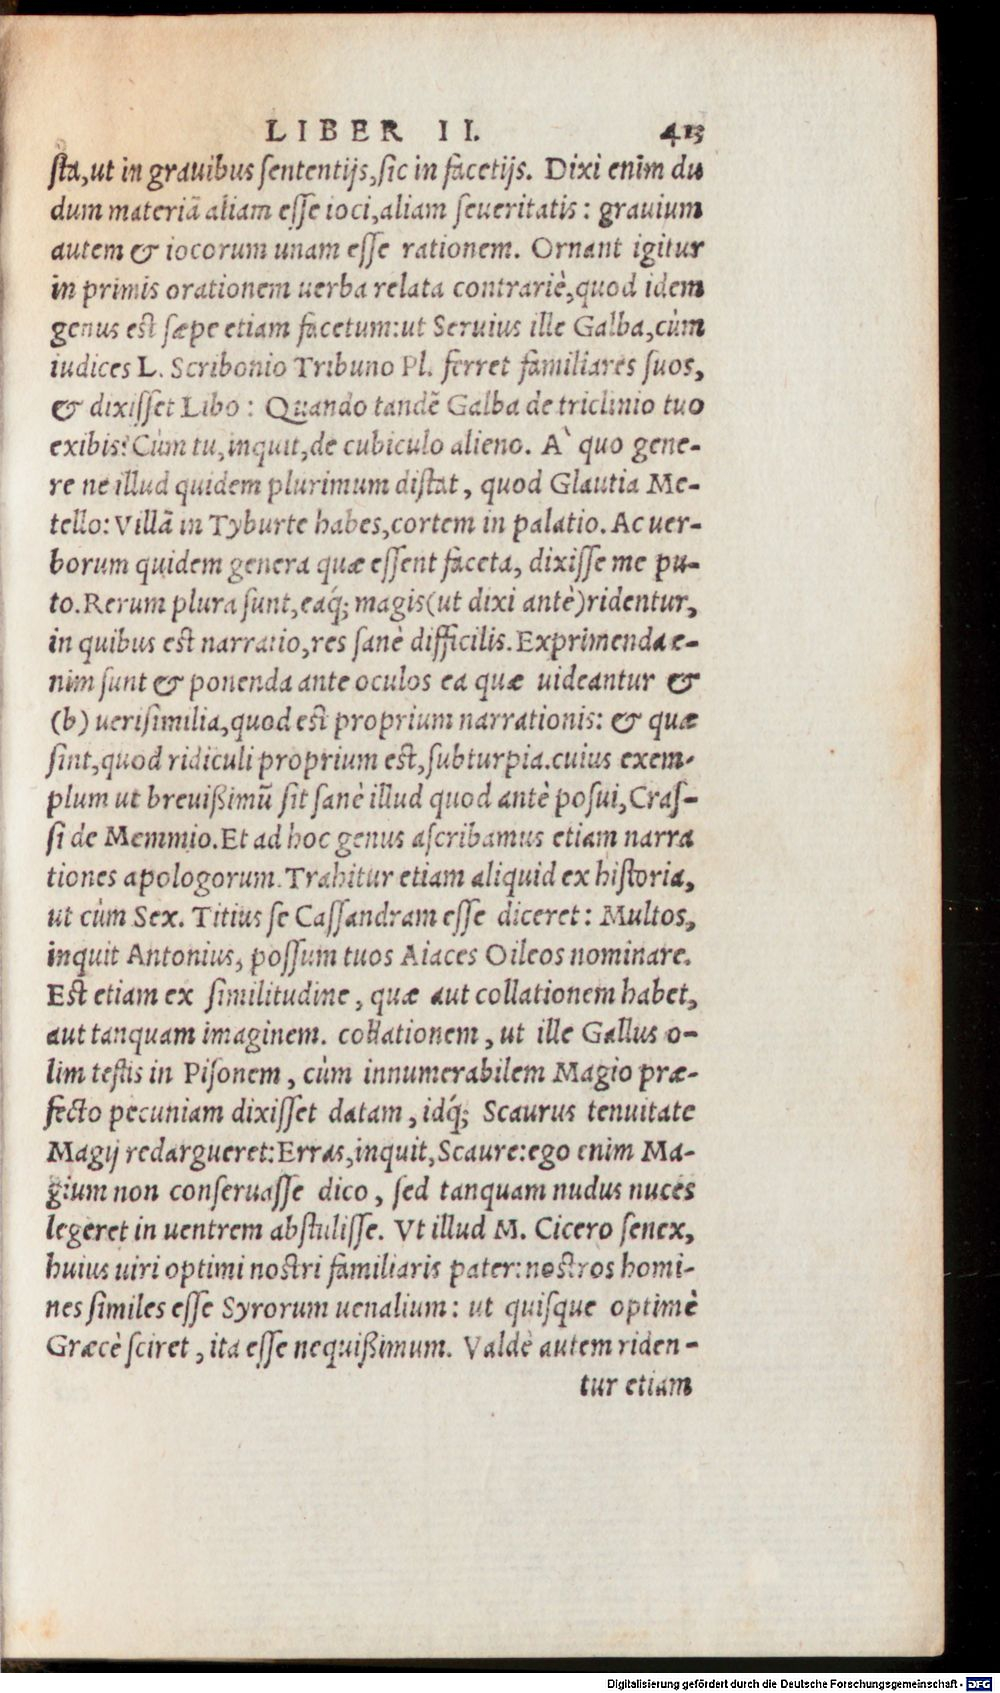 LIBER II. 413
sta, ut in grauibus sententijs, sic in facetijs. Dixi enim du
dum materiã aliam esse ioci, aliam seueritatis: grauium
autem & iocorum unam esse rationem. Ornant igitur
in primis orationem uerba relata contrariè, quod idem
genus est sæpe etiam facetum: ut Seruius ille Galba, cùm
iudices L. Scribonio Tribuno Pl. ferret familiares suos,
& dixisset Libo: Quando tandẽ Galba de triclinio tuo
exibis? Cùm tu, inquit, de cubiculo alieno. A` quo gene-
re ne illud quidem plurimum distat, quod Glautia Me-
tello: Villã in Tyburte habes, cortem in palatio. Ac uer-
borum quidem genera quæ essent faceta, dixisse me pu-
to. Rerum plura sunt, eaq́; magis (ut dixi antè) ridentur,
in quibus est narratio, res sanè difficilis. Exprimenda e-
nim sunt & ponenda ante oculos ea quæ uideantur &
(b) uerisimilia, quod est proprium narrationis: & quæ
sint, quod ridiculi proprium est, subturpia. cuius exem-
plum ut breuißimũ sit sanè illud quod antè posui, Cras-
si de Memmio. Et ad hoc genus ascribamus etiam narra
tiones apologorum. Trahitur etiam aliquid ex historia,
ut cùm Sex. Titius se Cassandram esse diceret: Multos,
inquit Antonius, possum tuos Aiaces Oileos nominare.
Est etiam ex similitudine, quæ aut collationem habet,
aut tanquam imaginem. collationem, ut ille Gallus o-
lim testis in Pisonem, cùm innumerabilem Magio præ-
fecto pecuniam dixisset datam, idq́; Scaurus tenuitate
Magij redargueret: Erras, inquit, Scaure: ego enim Ma-
gium non conseruasse dico, sed tanquam nudus nuces
legeret in uentrem abstulisse. Vt illud M. Cicero senex,
huius uiri optimi nostri familiaris pater: nostros homi-
nes similes esse Syrorum uenalium: ut quisque optimè
Græcè sciret, ita esse nequißimum. Valdè autem riden-
tur etiam
Digitalisierung gefördert durch die Deutsche Forschungsgemeinschaft - DFG